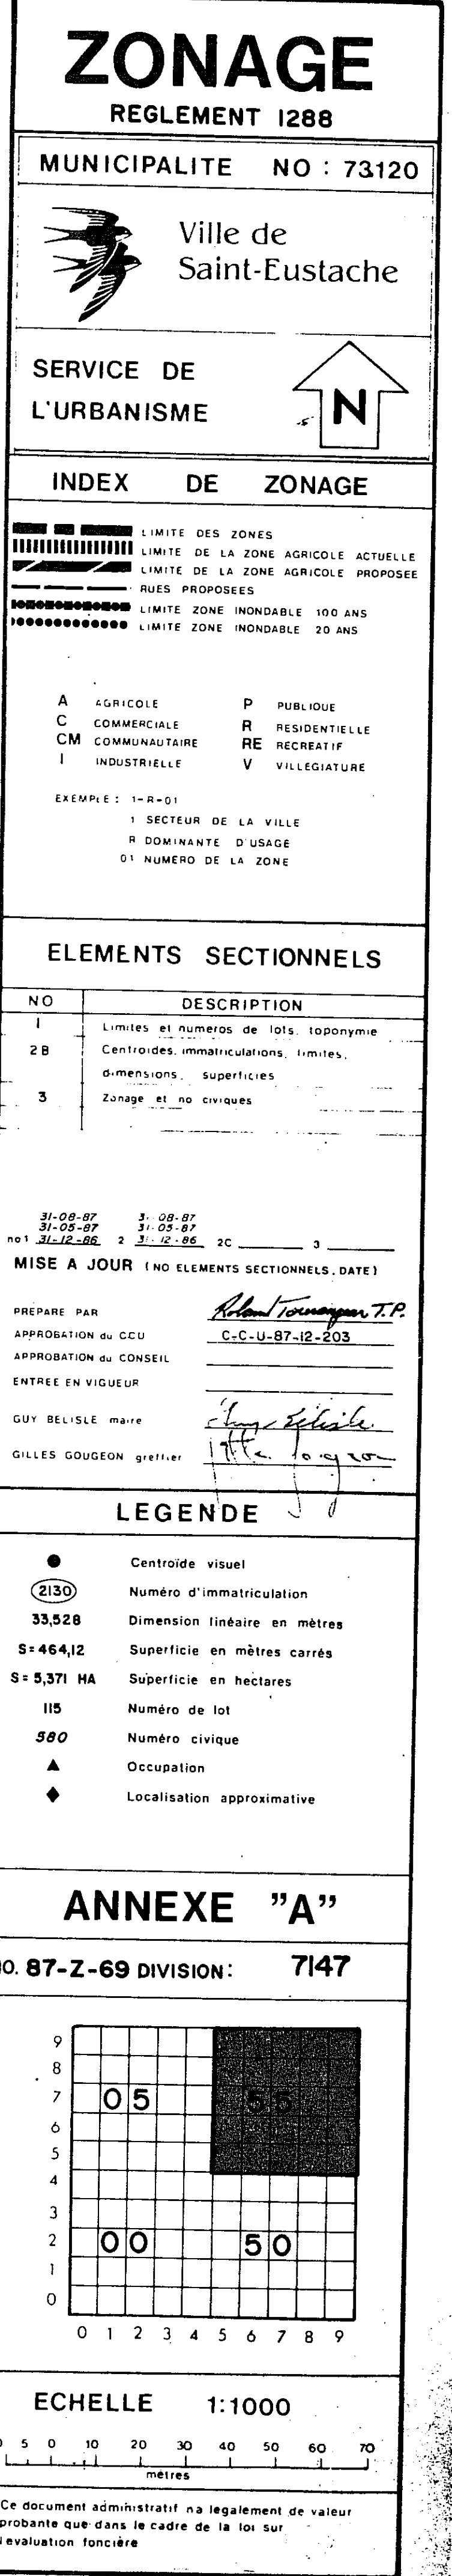 ZONAGE
REGLEMENT 1288
MUNICIPALITE NO : 73120
Ville de
Saint-Eustache
SERVICE DE
L'URBANISME
N
INDEX DE ZONAGE
LIMITE DES ZONES
LIMITE DE LA ZONE AGRICOLE ACTUELLE
LIMITE DE LA ZONE AGRICOLE PROPOSEE
RUES PROPOSEES
LIMITE ZONE INONDABLE 100 ANS
LIMITE ZONE INONDABLE 20 ANS
A AGRICOLE P PUBLIQUE
C COMMERCIALE R RESIDENTIELLE
CM COMMUNAUTAIRE RE RECREATIF
I INDUSTRIELLE V VILLEGIATURE
EXEMPLE : 1-R-01
1 SECTEUR DE LA VILLE
R DOMINANTE D'USAGE
01 NUMERO DE LA ZONE
ELEMENTS SECTIONNELS
NO DESCRIPTION
1 Limites et numeros de lots, toponymie
2B Centroides, immatriculations, limites,
dimensions, superficies
3 Zonage et no civiques
31-08-87 31-08-87
31-05-87 31-05-87
no 1 31-12-86 2 31-12-86 2C 3
MISE A JOUR (NO ELEMENTS SECTIONNELS, DATE)
PREPARE PAR T.P.
APPROBATION du CCU C-C-U-87-12-203
APPROBATION du CONSEIL
ENTREE EN VIGUEUR
GUY BELISLE maire
GILLES GOUGEON greffier
LEGENDE
Centroïde visuel
2130 Numéro d'immatriculation
33,528 Dimension linéaire en mètres
S=464,12 Superficie en mètres carrés
S= 5,371 HA Superficie en hectares
115 Numéro de lot
580 Numéro civique
Occupation
Localisation approximative
ANNEXE "A"
NO. 87-Z-69 DIVISION: 7147
9
8
7 05 55
6
5
4
3
2 00 50
1
0
0 1 2 3 4 5 6 7 8 9
ECHELLE 1:1000
5 0 10 20 30 40 50 60 70
mètres
Ce document administratif n'a legalement de valeur
probante que dans le cadre de la loi sur
l'evaluation foncière